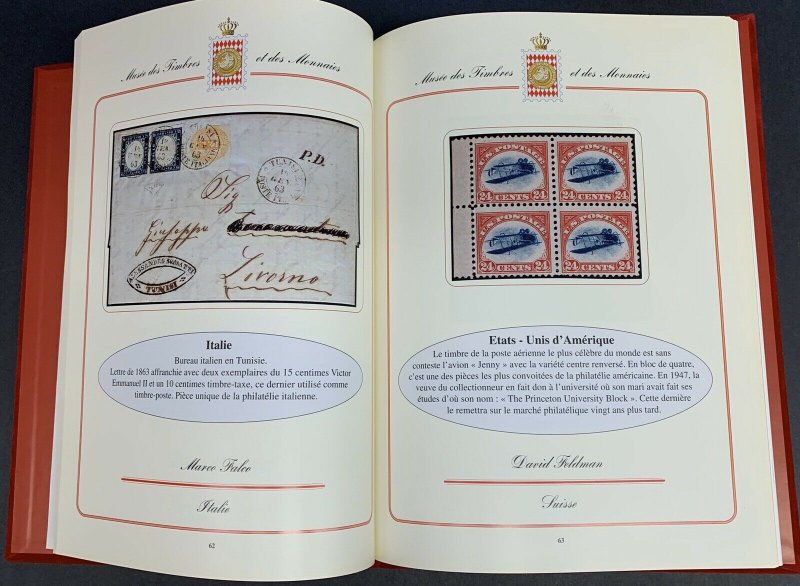 Musée des Timbres et des Monnaies
P.D.
63
TUNISI
63
Sig
Giuseppe
Livorno
Italie
Bureau italien en Tunisie.
Lettre de 1863 affranchie avec deux exemplaires du 15 centimes Victor
Emmanuel II et un 10 centimes timbre-taxe, ce dernier utilisé comme
timbre-poste. Pièce unique de la philatélie italienne.
Marco Falco
Italie
62
Musée des Timbres et des Monnaies
U.S. POSTAGE
24 CENTS 24
U.S. POSTAGE
24 CENTS 24
U.S. POSTAGE
24 CENTS 24
U.S. POSTAGE
24 CENTS 24
Etats - Unis d'Amérique
Le timbre de la poste aérienne le plus célèbre du monde est sans
conteste l'avion « Jenny » avec la variété centre renversé. En bloc de quatre,
c'est une des pièces les plus convoitées de la philatélie américaine. En 1947, la
veuve du collectionneur en fait don à l'université où son mari avait fait ses
études d'où son nom : « The Princeton University Block ». Cette dernière
le remettra sur le marché philatélique vingt ans plus tard.
David Feldman
Suisse
63